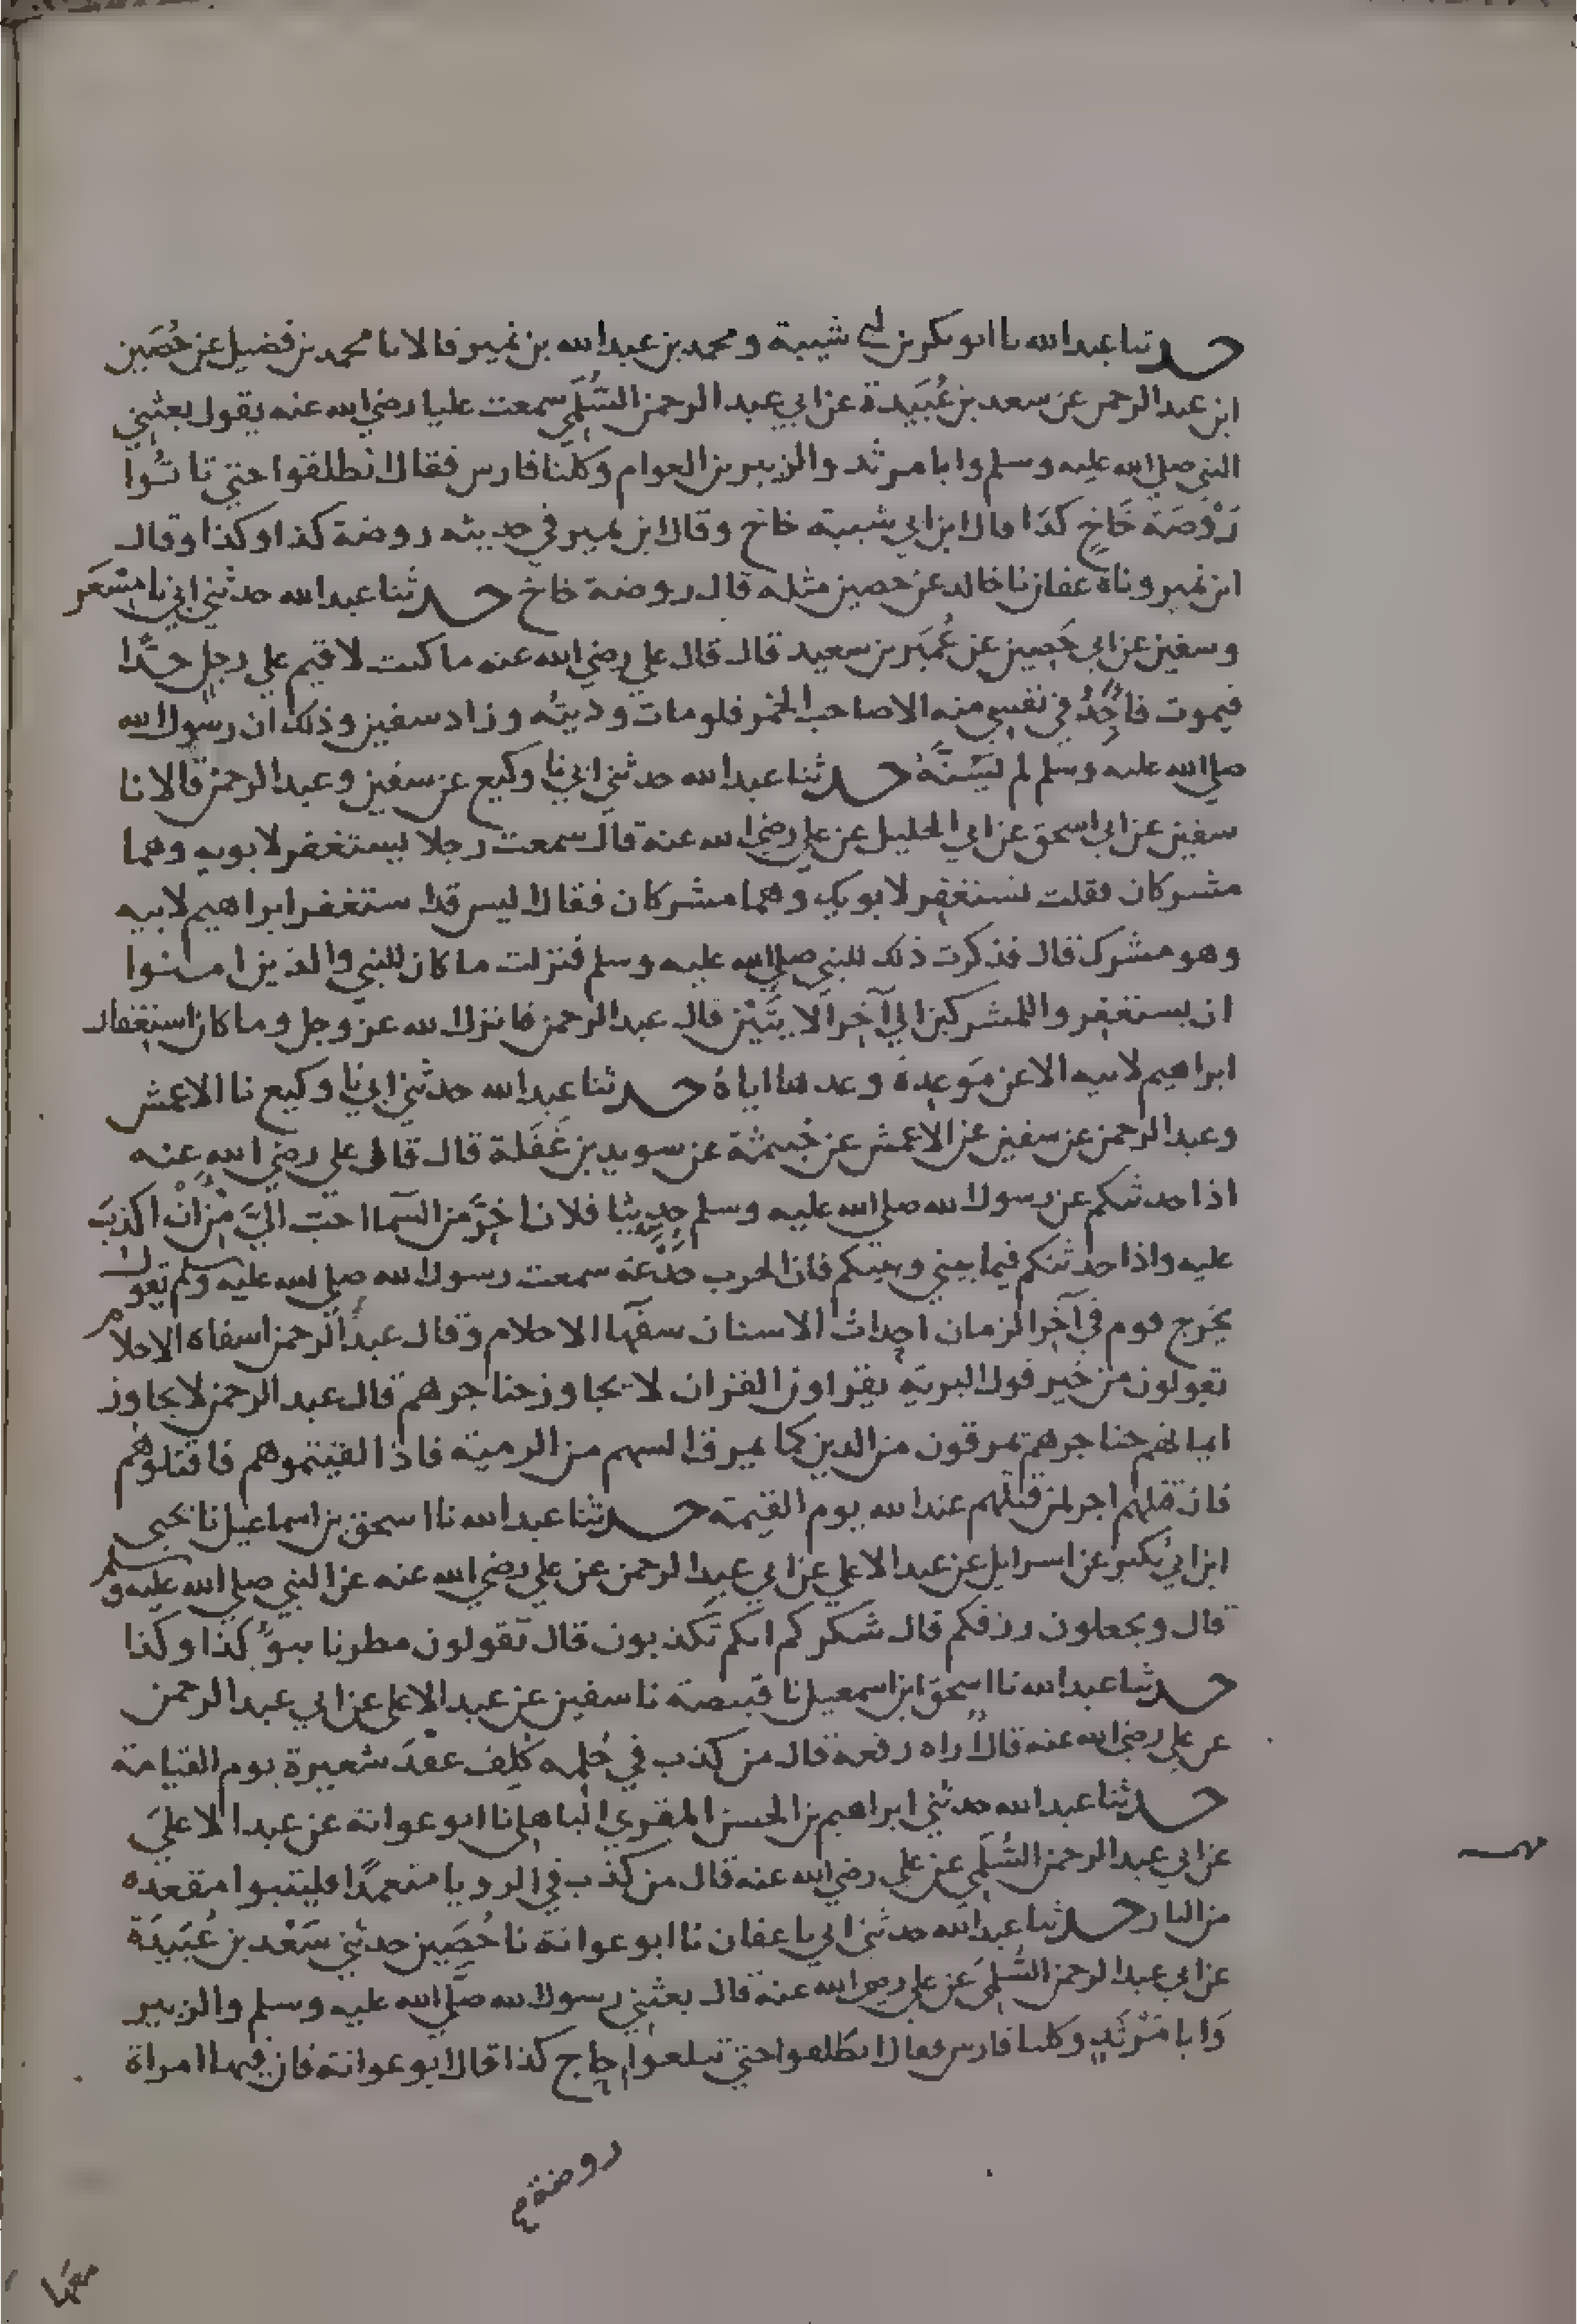 حدثنا عبد الله نا ابو بكر بن ابي شيبة ومحمد بن عبد الله بن نمير قالا نا محمد بن فضيل عن حُصَين
ابن عبد الرحمن عن سعد بن عُبَيدة عن ابي عبد الرحمن السُّلَمي سمعت عليا رضي الله عنه يقول بعثني
النبي صلى الله عليه وسلم وابا مرثد والزبير بن العوام وكلنا فارس فقال انطلقوا حتى تاتُوا
رَوْضَةَ خَاخٍ كذا قال ابن ابي شيبة خاخ وقال ابن نمير في حديثه روضة كذا وكذا وقال
ابن نمير وناه عفان نا خالد عن حصين مثله قال روضة خاخ حدثنا عبد الله حدثني ابي نا مِسْعَر
وسفين عن ابي حَصِين عن عُمَير بن سعيد قال قال علي رضي الله عنه ما كنت لاقيم على رجلٍ حدًّا
فيموت فاجِدُ في نفسي منه الا صاحب الخمر فلو مات وديته وزاد سفين وذلك ان رسول الله
صلى الله عليه وسلم لم يَسُنَّهُ حدثنا عبد الله حدثني ابي نا وكيع عن سفين وعبد الرحمن قالا نا
سفين عن ابي اسحق عن ابي الخليل عن علي رضي الله عنه قال سمعت رجلا يستغفر لابويه وهما
مشركان فقلت تستغفر لابويك وهما مشركان فقال اليس قد استغفر ابراهيم لابيه
وهو مشرك قال فذكرت ذلك للنبي صلى الله عليه وسلم فنزلت ما كان للنبي والذين امنوا
ان يستغفروا للمشركين الى آخر الايتَيْن قال عبد الرحمن فانزل الله عز وجل وما كان استغفار
ابراهيم لابيه الا عن مَوعِدة وعدها اياهُ حدثنا عبد الله حدثني ابي نا وكيع نا الاعمش
وعبد الرحمن عن سفين عن الاعمش عن خيثمة عن سويد بن غَفَلة قال قال علي رضي الله عنه
اذا حدثتكم عن رسول الله صلى الله عليه وسلم حديثا فلان اخِرَّ من السما احبّ اليَّ مِنْ اَنْ اكذبَ
عليه واذا حدثتكم فيما بيني وبينكم فان الحرب خَدْعَة سمعت رسول الله صلى الله عليه وسلم يقول
يخرج قوم في آخر الزمان احداث الاسنان سفها الاحلام وقال عبد الرحمن اسفاه الاحلام
يقولون من خير قول البرية يقراون القران لا يجاوز حناجرهم قال عبد الرحمن لا يجاوز
ايمانهم حناجرهم يمرقون من الدين كما يمرق السهم من الرمية فاذا لقيتموهم فاقتلوهم
فان قتلهم اجر لمن قتلهم عند الله يوم القيمة حدثنا عبد الله نا اسحق بن اسماعيل نا يحيى
ابن ابي بُكير عن اسرايل عن عبد الاعلى عن ابي عبد الرحمن عن علي رضي الله عنه عن النبي صلى الله عليه وسلم
قال وتجعلون رزقكم قال شكركم انكم تكذبون قال تقولون مطرنا بنوء كذا وكذا
حدثنا عبد الله نا اسحق ابن اسمعيل نا قبيصة نا سفين عن عبد الاعلى عن ابي عبد الرحمن
عن علي رضي الله عنه قال اراه رفعه قال من كذب في حُلمه كُلِّف عقدَ شعيرة يوم القيامة
حدثنا عبد الله حدثني ابراهيم بن الحسن المقري الباهلي نا ابو عوانة عن عبد الاعلى
عن ابي عبد الرحمن السُّلَمي عن علي رضي الله عنه قال من كذب في الرويا متعمدًا فليتبوا مقعده
من النار حدثنا عبد الله حدثني ابي نا عفان نا ابو عوانة نا حُصَين حدثني سَعْد بن عُبَيدَة
عن ابي عبد الرحمن السُّلمي عن علي رضي الله عنه قال بعثني رسول الله صلى الله عليه وسلم والزبير
وَابا مَرْثَدٍ وكلنا فارس فقال انطلقوا حتى تبلغوا حاج كذا قال ابو عوانة فان فيها امراة
روضة
معها